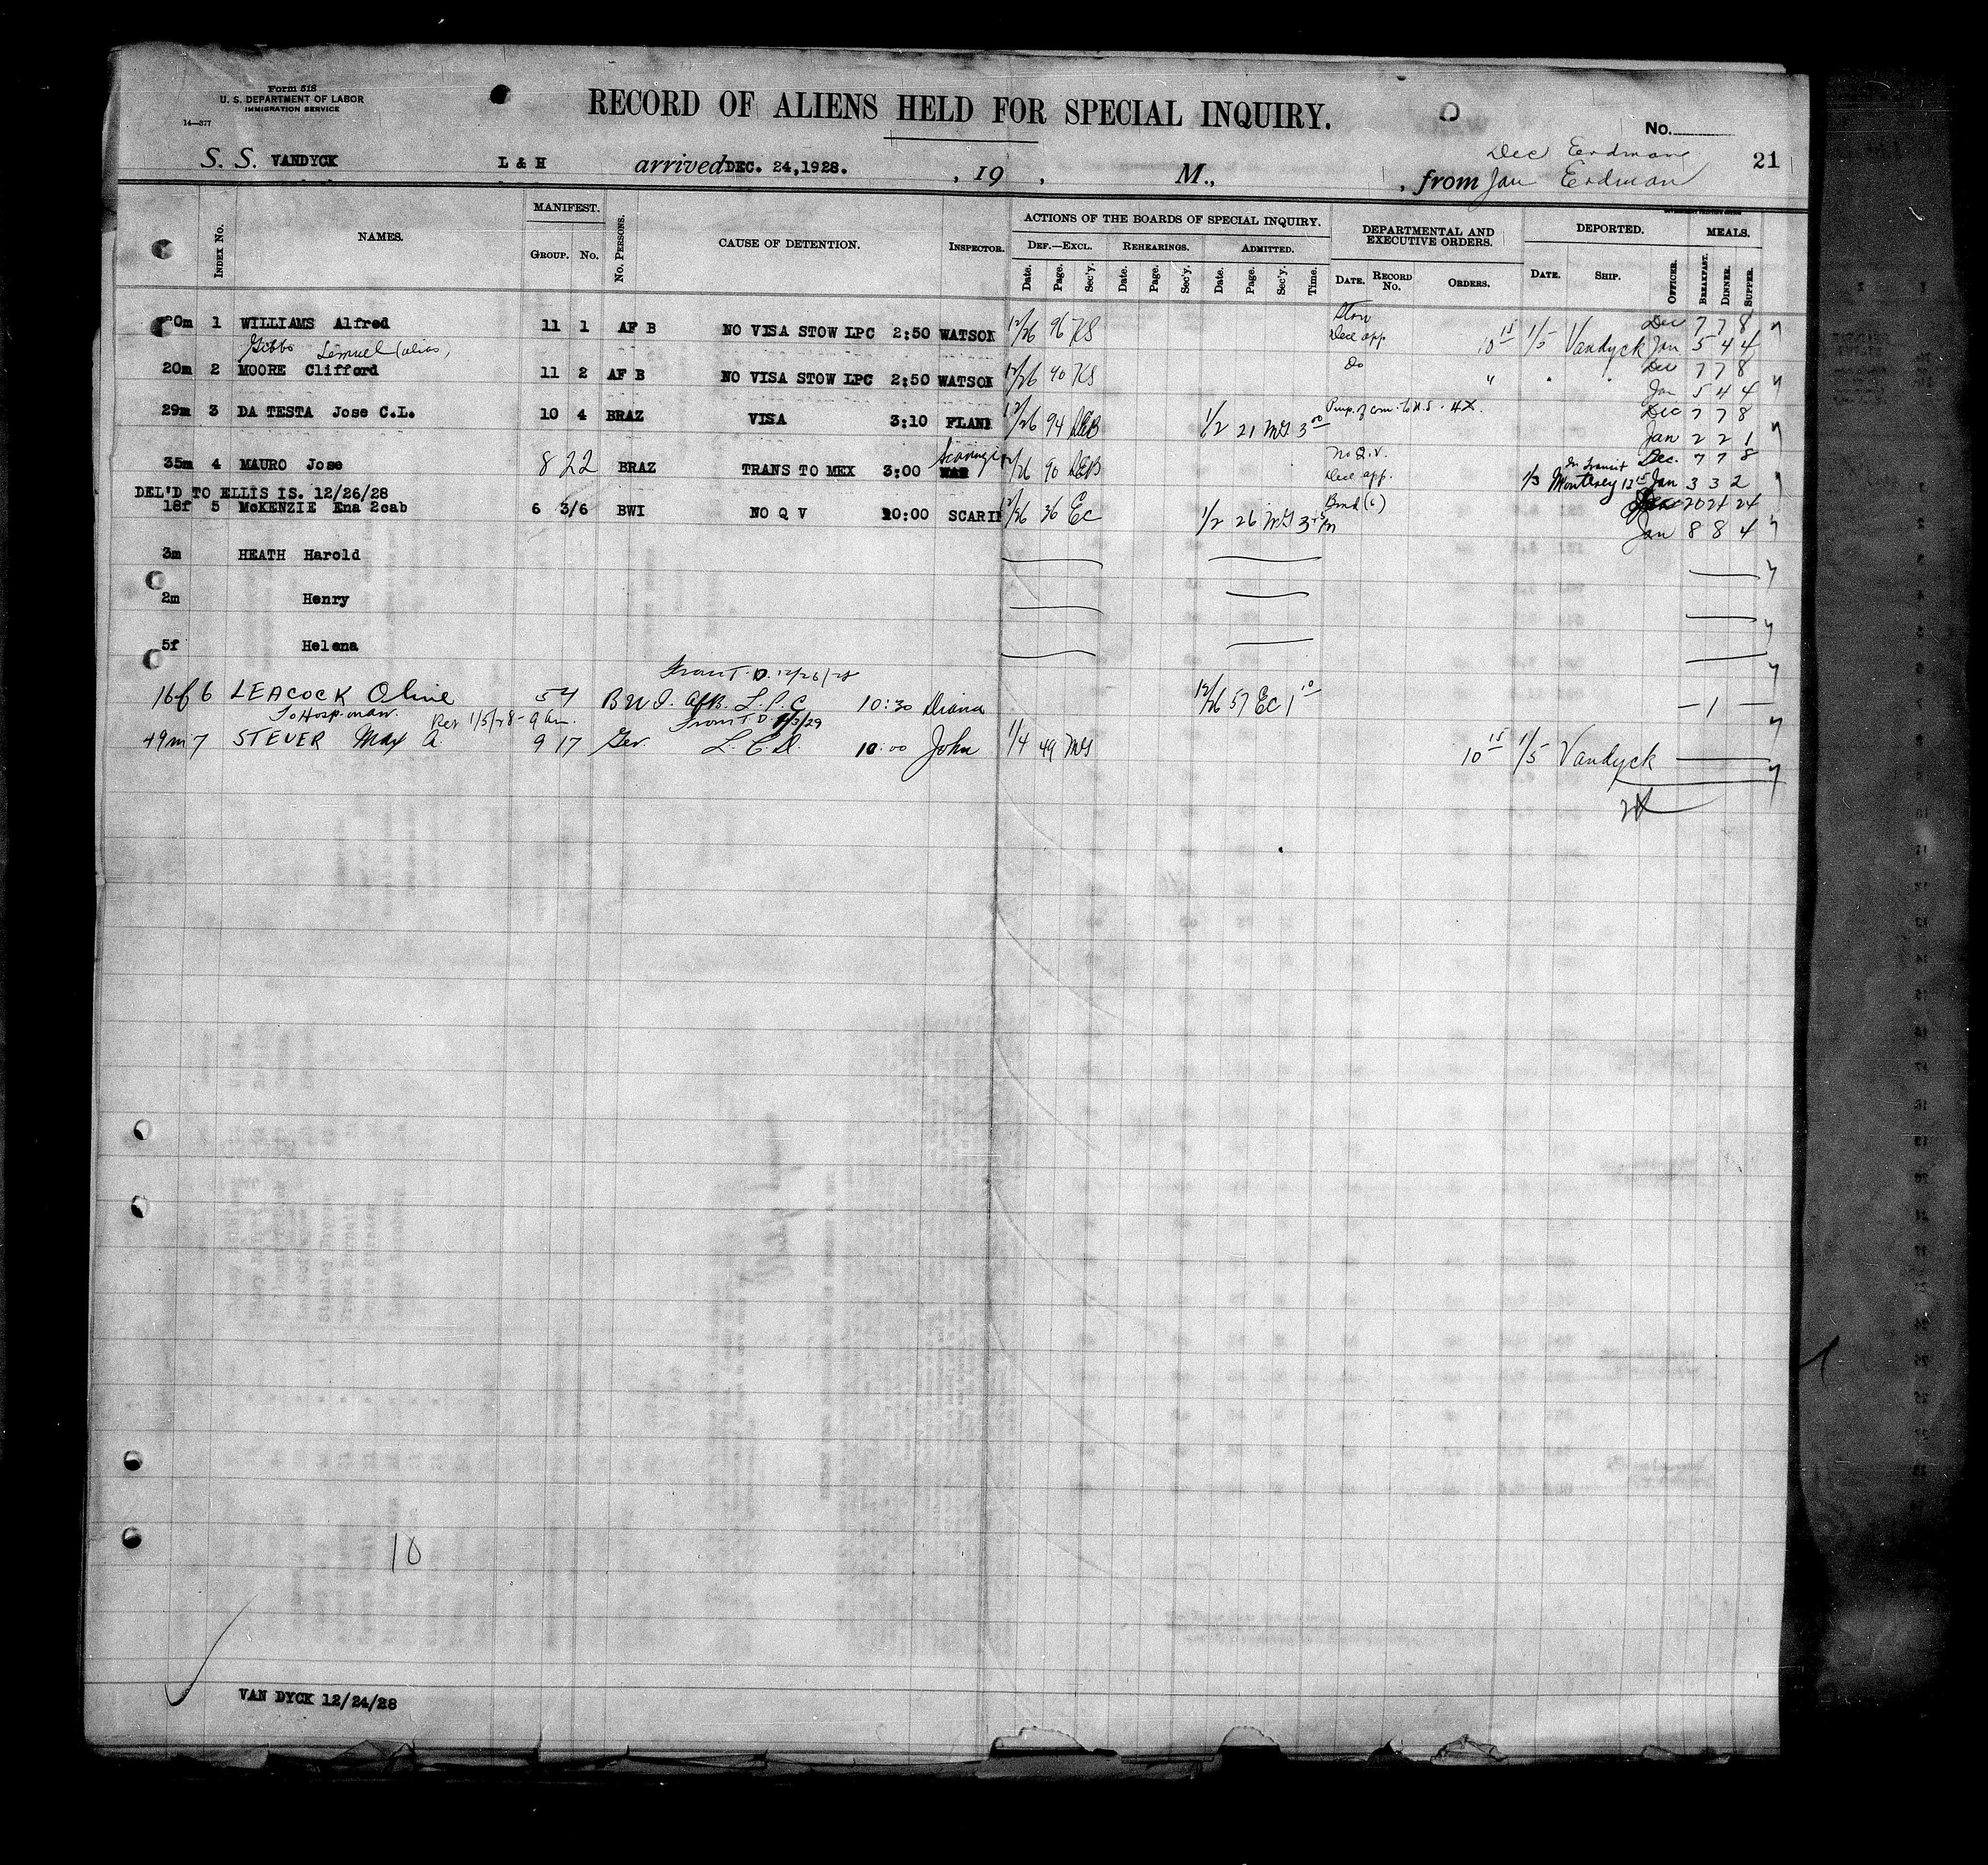 Form 518
U. S. DEPARTMENT OF LABOR
IMMIGRATION SERVICE
14—377
RECORD OF ALIENS HELD FOR SPECIAL INQUIRY.
No.
Dec Erdman
21
S. S. VANDYCK L & H arrived DEC. 24,1928. , 19 , M., , from Jan Erdman
INDEX No. NAMES. MANIFEST. GROUP. No. No. PERSONS. CAUSE OF DETENTION. INSPECTOR. ACTIONS OF THE BOARDS OF SPECIAL INQUIRY. DEPARTMENTAL AND EXECUTIVE ORDERS. DEPORTED. MEALS.
DEF.—EXCL. REHEARINGS. ADMITTED.
Date. Page. Sec'y. Date. Page. Sec'y. Date. Page. Sec'y. Time. DATE. RECORD No. ORDERS. DATE. SHIP. OFFICER. BREAKFAST. DINNER. SUPPER.
20m 1 WILLIAMS Alfred 11 1 AF B NO VISA STOW LPC 2:50 WATSON 12/26 96 KS Stow Dec 7 7 8
Gibbs Lemuel (alias) Decl app. 10 15 1/5 Vandyck Jan 5 4 4
20m 2 MOORE Clifford 11 2 AF B NO VISA STOW LPC 2:50 WATSON 12/26 90 KS Do " " " Dec 7 7 8
Jan 5 4 4
29m 3 DA TESTA Jose C.L. 10 4 BRAZ VISA 3:10 FLANN 12/26 94 DEB 1/2 21 MG 3 00 Purp. of com. to U.S. 4X. Dec 7 7 8
Jan 2 2 1
35m 4 MAURO Jose 8 22 BRAZ TRANS TO MEX 3:00 12/26 90 DEB No Q.V. In Transit Dec. 7 7 8
Decl app. 1/3 Monterey 12 15 Jan 3 3 2
DEL'D TO ELLIS IS. 12/26/28
18f 5 McKENZIE Ena 2cab 6 3/6 BWI NO Q V 10:00 SCARII 12/26 36 EC 1/2 26 MG Bond (6) 20 21 24
Jan 8 8 4
3m HEATH Harold
2m Henry
5f Helena
From T.D. 12/26/28
16f 6 LEACOCK Olive 5 4 B W I. Af B. L. P. C 10:30 Diana 12/26 57 EC 1 10 — 1 —
To Hosp. Ret 1/5/28 - 9 am. From T D 1/3/29
49m 7 STEUER Max A. 9 17 Ger. L. C. D. 10:00 John 1/4 49 MG 10 15 1/5 Vandyck
10
VAN DYCK 12/24/28